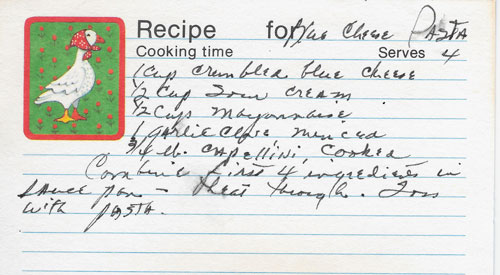 Recipe for Blue Cheese Pasta
Cooking time Serves 4
1 Cup crumbled blue cheese
1/2 Cup Sour Cream
1/2 Cup Mayonnaise
1 garlic clove minced
3/4 lb. CAPELLINI, Cooked
Combine first 4 ingredients in
sauce pan - Heat through. Toss
with PASTA.